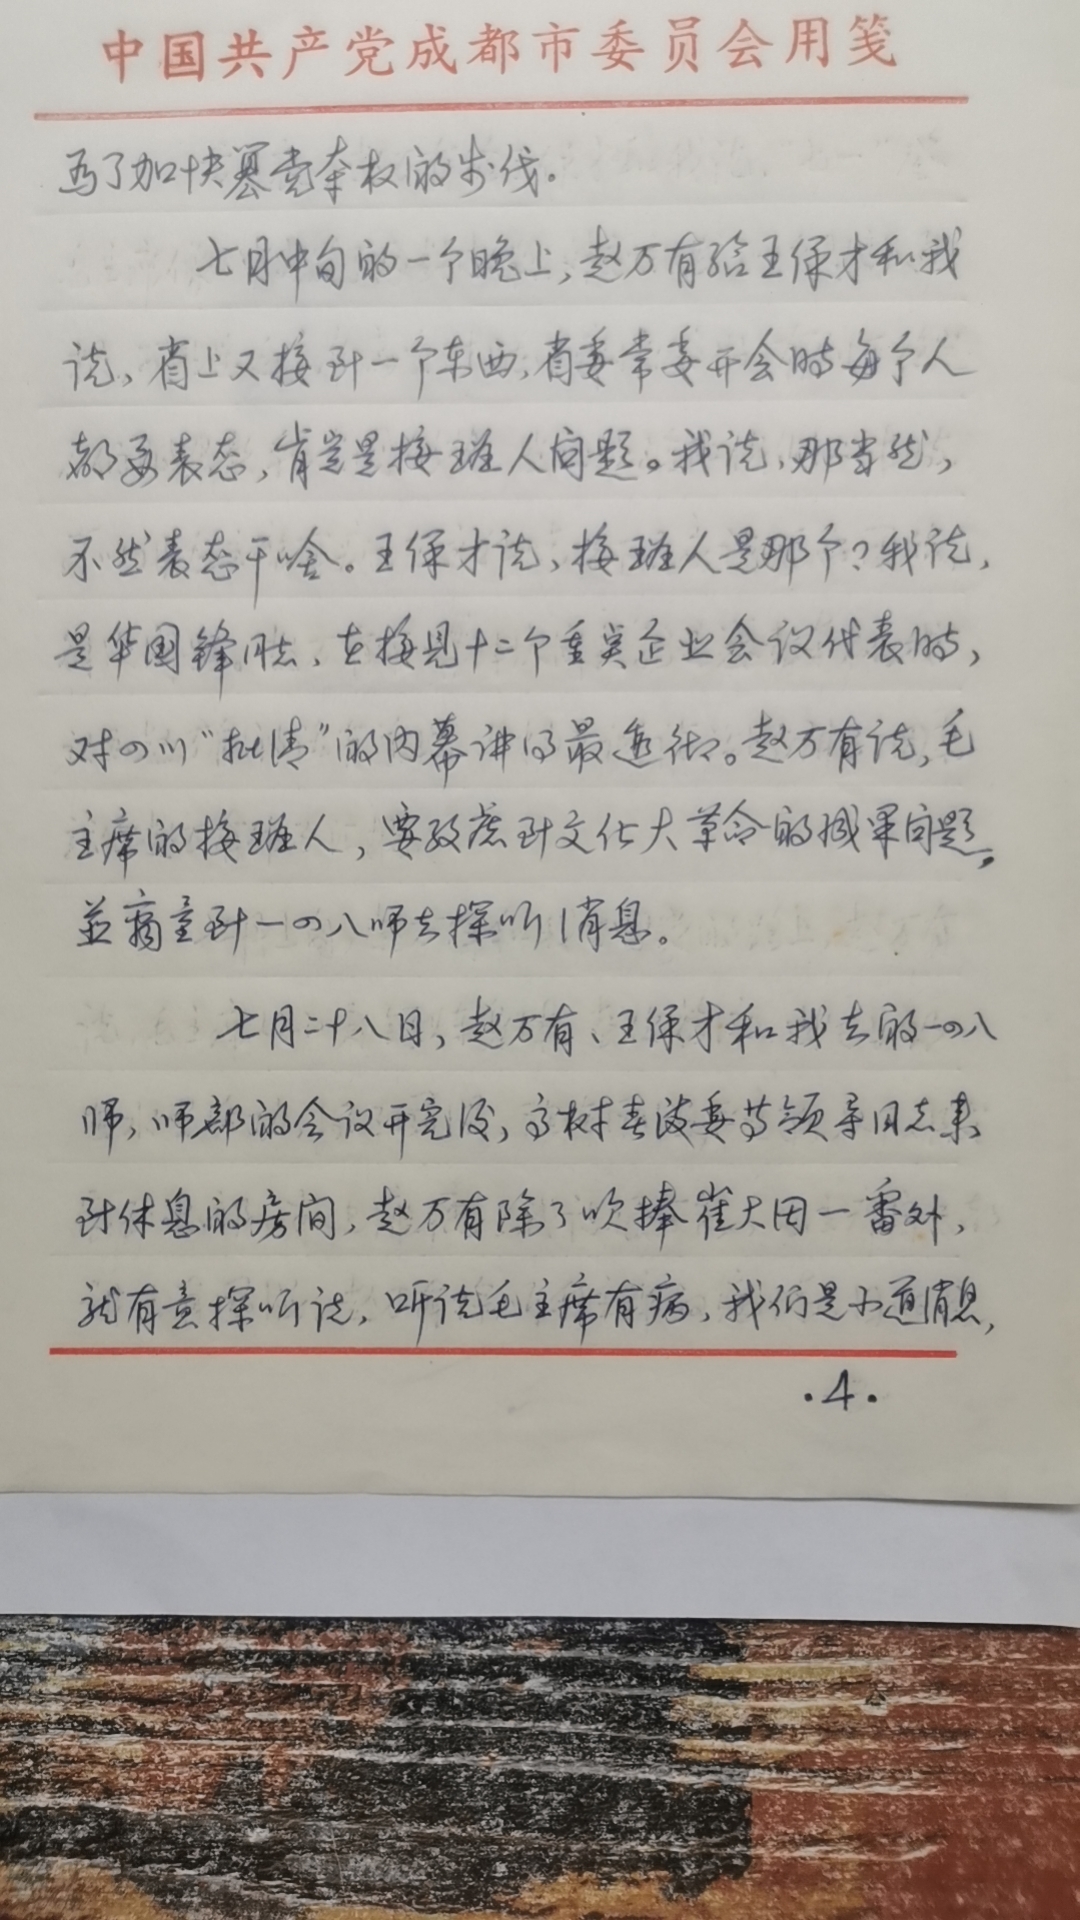 中国共产党成都市委员会用笺
为了加快篡党夺权的步伐。
七月中旬的一个晚上，赵万有给王保才和我
说，省上又接到一个东西，省委常委开会时每个人
都要表态，肯定是接班人问题。我说，那当然，
不然表态干啥。王保才说，接班人是那个？我说，
是华国锋同志，在接见十二个重点企业会议代表时，
对四川“批清”的内幕讲得最透彻。赵万有说，毛
主席的接班人，要考虑到文化大革命的成果问题，
并商量到一四八师去探听消息。
七月二十八日，赵万有、王保才和我去的一四八
师，师部的会议开完后，高树春政委等领导同志来
到休息的房间，赵万有除了吹捧崔大田一番外，
就有意探听说，听说毛主席有病，我们是小道消息，
·4·